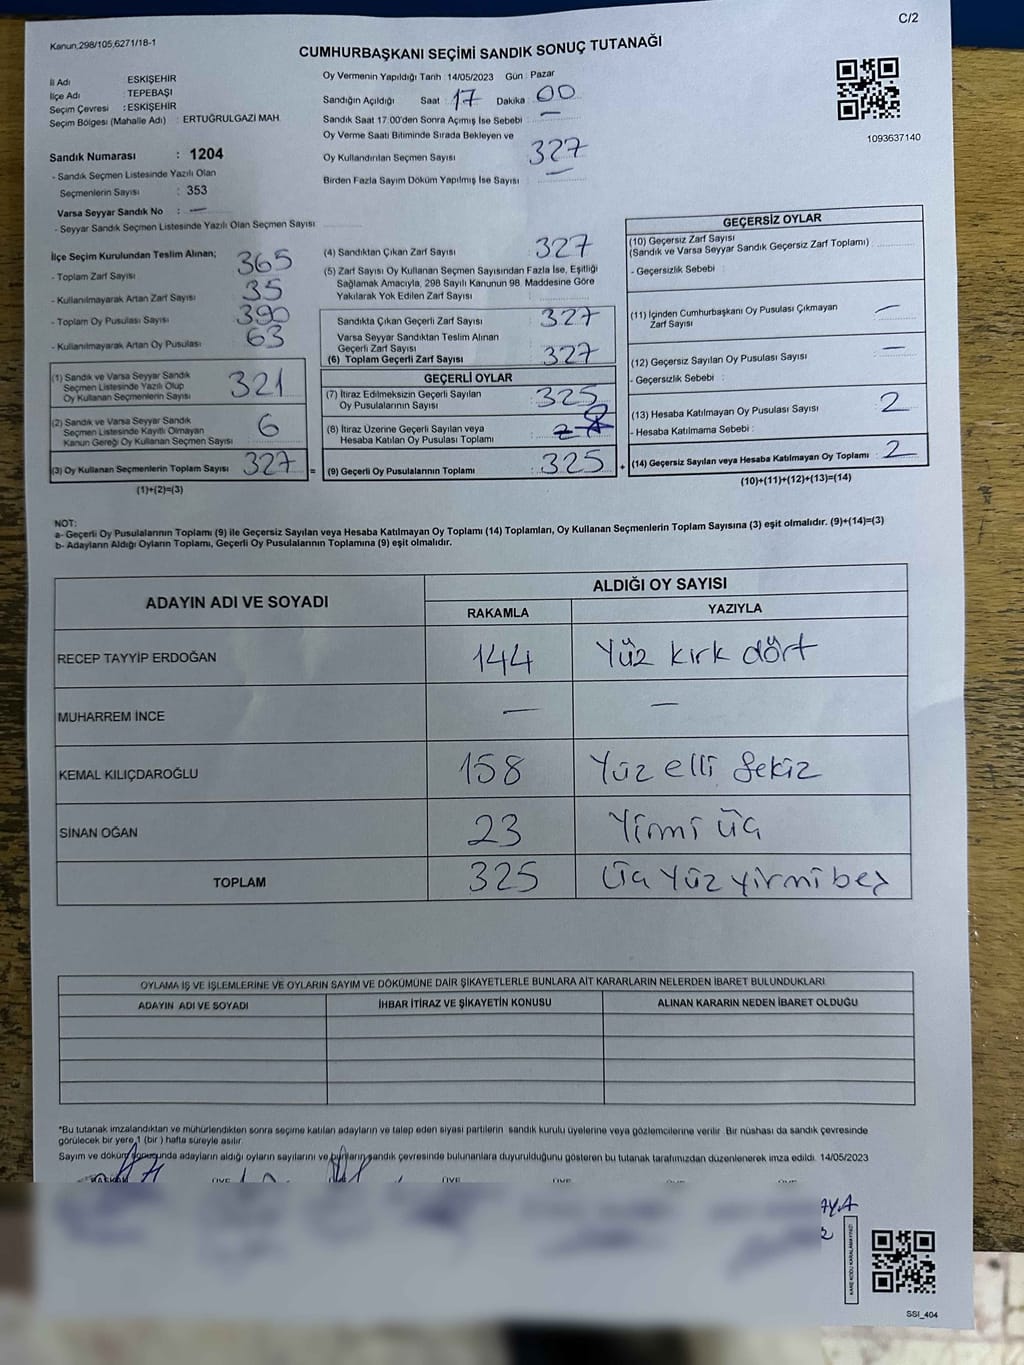 C/2
Kanun,298/105,6271/18-1
CUMHURBAŞKANI SEÇİMİ SANDIK SONUÇ TUTANAĞI
İl Adı : ESKİŞEHİR
İlçe Adı : TEPEBAŞI
Seçim Çevresi : ESKİŞEHİR
Seçim Bölgesi (Mahalle Adı) : ERTUĞRULGAZİ MAH.
Sandık Numarası : 1204
- Sandık Seçmen Listesinde Yazılı Olan
Seçmenlerin Sayısı : 353
Varsa Seyyar Sandık No : —
- Seyyar Sandık Seçmen Listesinde Yazılı Olan Seçmen Sayısı :
Oy Vermenin Yapıldığı Tarih : 14/05/2023 Gün : Pazar
Sandığın Açıldığı Saat 17 Dakika 00
Sandık Saat 17:00'den Sonra Açımış İse Sebebi : —
Oy Verme Saati Bitiminde Sırada Bekleyen ve
Oy Kullandırılan Seçmen Sayısı : 327
Birden Fazla Sayım Döküm Yapılmış İse Sayısı : —
1093637140
İlçe Seçim Kurulundan Teslim Alınan;
- Toplam Zarf Sayısı : 365
- Kullanılmayarak Artan Zarf Sayısı : 35
- Toplam Oy Pusulası Sayısı : 390
- Kullanılmayarak Artan Oy Pusulası : 63
(1) Sandık ve Varsa Seyyar Sandık
Seçmen Listesinde Yazılı Olup
Oy Kullanan Seçmenlerin Sayısı : 321
(2) Sandık ve Varsa Seyyar Sandık
Seçmen Listesinde Kayıtlı Olmayan
Kanun Gereği Oy Kullanan Seçmen Sayısı : 6
(3) Oy Kullanan Seçmenlerin Toplam Sayısı : 327 =
(1)+(2)=(3)
(4) Sandıktan Çıkan Zarf Sayısı : 327
(5) Zarf Sayısı Oy Kullanan Seçmen Sayısından Fazla İse, Eşitliği
Sağlamak Amacıyla, 298 Sayılı Kanunun 98. Maddesine Göre
Yakılarak Yok Edilen Zarf Sayısı :
Sandıkta Çıkan Geçerli Zarf Sayısı : 327
Varsa Seyyar Sandıktan Teslim Alınan
Geçerli Zarf Sayısı :
(6) Toplam Geçerli Zarf Sayısı : 327
GEÇERLİ OYLAR
(7) İtiraz Edilmeksizin Geçerli Sayılan
Oy Pusulalarının Sayısı : 325
(8) İtiraz Üzerine Geçerli Sayılan veya
Hesaba Katılan Oy Pusulası Toplamı :
(9) Geçerli Oy Pusulalarının Toplamı : 325 +
GEÇERSİZ OYLAR
(10) Geçersiz Zarf Sayısı
(Sandık ve Varsa Seyyar Sandık Geçersiz Zarf Toplamı) :
- Geçersizlik Sebebi :
(11) İçinden Cumhurbaşkanı Oy Pusulası Çıkmayan
Zarf Sayısı : —
(12) Geçersiz Sayılan Oy Pusulası Sayısı : —
- Geçersizlik Sebebi :
(13) Hesaba Katılmayan Oy Pusulası Sayısı : 2
- Hesaba Katılmama Sebebi :
(14) Geçersiz Sayılan veya Hesaba Katılmayan Oy Toplamı : 2
(10)+(11)+(12)+(13)=(14)
NOT:
a- Geçerli Oy Pusulalarının Toplamı (9) ile Geçersiz Sayılan veya Hesaba Katılmayan Oy Toplamı (14) Toplamları, Oy Kullanan Seçmenlerin Toplam Sayısına (3) eşit olmalıdır. (9)+(14)=(3)
b- Adayların Aldığı Oyların Toplamı, Geçerli Oy Pusulalarının Toplamına (9) eşit olmalıdır.
ADAYIN ADI VE SOYADI ALDIĞI OY SAYISI
RAKAMLA YAZIYLA
RECEP TAYYİP ERDOĞAN 144 Yüz kırk dört
MUHARREM İNCE — —
KEMAL KILIÇDAROĞLU 158 Yüz elli Sekiz
SİNAN OĞAN 23 Yirmi üç
TOPLAM 325 Üç Yüz yirmi beş
OYLAMA İŞ VE İŞLEMLERİNE VE OYLARIN SAYIM VE DÖKÜMÜNE DAİR ŞİKAYETLERLE BUNLARA AİT KARARLARIN NELERDEN İBARET BULUNDUKLARI
ADAYIN ADI VE SOYADI İHBAR İTİRAZ VE ŞİKAYETİN KONUSU ALINAN KARARIN NEDEN İBARET OLDUĞU
*Bu tutanak imzalandıktan ve mühürlendikten sonra seçime katılan adayların ve talep eden siyasi partilerin sandık kurulu üyelerine veya gözlemcilerine verilir. Bir nüshası da sandık çevresinde
görülecek bir yere 1 (bir ) hafta süreyle asılır.
Sayım ve döküm sonucunda adayların aldığı oyların sayılarını ve bunların sandık çevresinde bulunanlara duyurulduğunu gösteren bu tutanak tarafımızdan düzenlenerek imza edildi. 14/05/2023
KARE KODU KARALAMAYINIZ!
SSİ_404